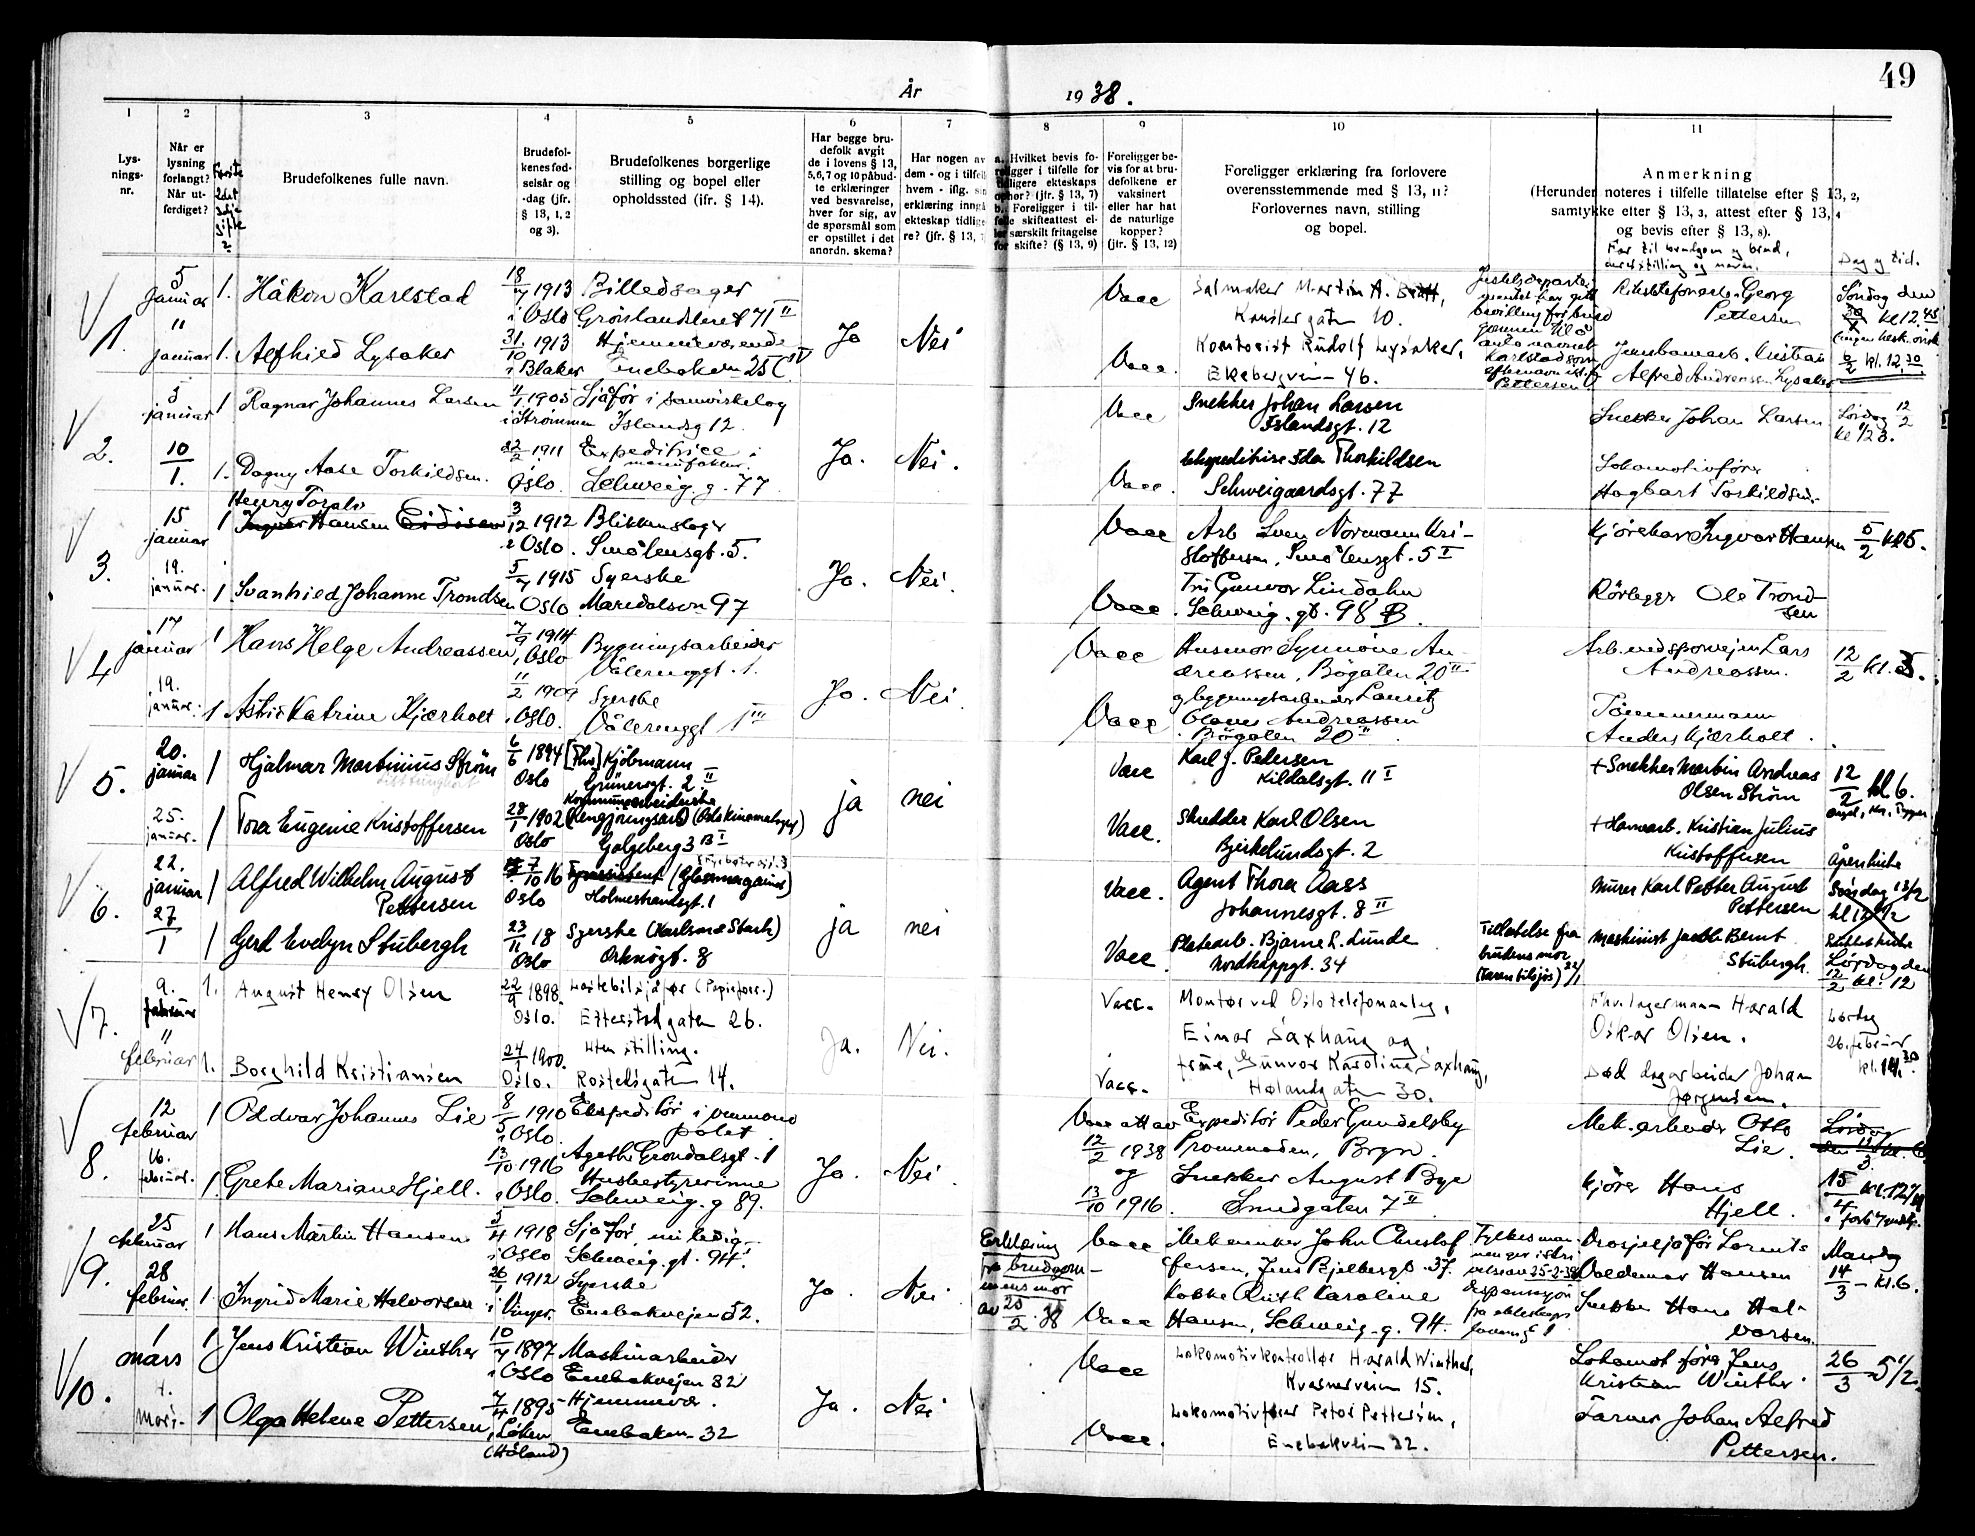 49
År 1938.
1 2 3 4 5 6 7 8 9 10 11
Lys-
nings-
nr.
Når er
lysning
forlangt?
Når ut-
ferdiget?
Brudefolkenes fulle navn.
Brudefol-
kenes fød-
selsår og
-dag (jfr.
§ 13, 1, 2
og 3).
Brudefolkenes borgerlige
stilling og bopel eller
opholdssted (ifr. § 14).
Har begge bru-
defolk avgit
de i lovens § 13,
5,6,7 og 10 påbud-
te erklæringer
ved besvarelse,
hver for sig, av
de spørsmål som
er opstillet i det
anordn. skema?
Har nogen av
dem - og i tilfelle
hvem - iflg.
erklæring inngå
ekteskap tidlige
re? (jfr. § 13,
a. Hvilket bevis fo-
religger i tilfelle for
tidligere ekteskaps
ophør? (jfr. § 13, 7)
b. Foreligger i til-
felle skifteattest el-
ler særskilt fritagelse
for skifte? (§ 13, 9)
Foreligger be-
vis for at bru-
defolkene er
vaksinert
eller har hat
de naturlige
kopper?
(jfr. § 13, 12)
Foreligger erklæring fra forlovere
overensstemmende med § 13, 11?
Forlovernes navn, stilling
og bopel.
Anmerkning
(Herunder noteres i tilfelle tillatelse efter § 13, 2,
samtykke efter § 13, 3, attest efter § 13, 4
og bevis efter § 13, 8).
Far til brudgom og brud,
deres stilling og navn.
Dag og tid.
1.
5 januar 1. Håkon Karlstad 1913 i Oslo Billedskjærer Grønlandsleret 71 II
Vacc Salmaker Martin A. Kanslergaten 10.
Georg Pettersen
Søndag den kl 12.45
" januar 1. Alfhild Lysaker 31/10 1913 i Blaker Hjemmeværende Enebakvn 25 C IV
Ja Nei
Vacc. Kontorist Rudolf Lysaker, Ekebergvn 46.
Alfred Andreas Lysaker
6/2 kl. 12.30
2.
5 januar 1 Ragnar Johannes Larsen 1905 i Strømmen Sjåfør i samvirkelag Islandsg 12.
Vacc Snekker Johan Larsen Islandsgt. 12
Snekker Johan Larsen
Lørdag 12/2
10/1. 1. Dagny Aase Torkildsen. 1911 Oslo. Expeditrice i manufaktur. Schweig. g. 77
Ja. Nei.
Vacc. Ekspeditrise Ida Thorkildsen Schweigaardsgt. 77
Lokomotivfører Hagbart Torkildsen
3.
15 januar 1 Henry Toralv Hansen 3/12 1912 i Oslo. Blikkenslager Smålensgt. 5.
Vacc Arb Sven Normann Kristoffersen, Smålensgt. 5 II
Kjørekar Ingvar Hansen 5/2 kl 5.
19. januar. 1 Svanhild Johanne Trondsen 1915 Oslo Syerske Maridalsvn 97
Ja. Nei.
Vacc. Gunvor Lindahn Schweig. gt. 98 B.
Rørlegger Ole Trondsen
4
17 januar 1 Hans Helge Andreassen 7/9 1914 i Oslo Bygningsarbeider Vålerenggt. 1.
Vacc Husmor Synnøve Andreassen, Bøgaten 20 II
Arb. ved sporveien Lars Andreassen.
12/2 kl. 5.
19. januar. 1 Astrid Katrine Kjærholt 11/2 1909 Oslo. Syerske Vålerenggt 1 III
Ja. Nei
Vacc og bygningsarbeider Lauritz Olaves Andreassen Bøgaten 20 II
Tømmermann Anders Kjærholt.
5.
20. januar 1 Hjalmar Martinius Strøm 6/6 1894 Oslo Kjøbmann Grünersgt. 2 II
Vacc Karl J. Petersen Kildalsgt. 11 I
+ Snekker Martin Andreas Olsen Strøm
12/2 kl 6.
25. januar. 1 Tora Eugenie Kristoffersen 28/1 1902 Oslo Kommunearbeiderske Galgeberg 3 B I
ja nei
Vacc. Skredder Karl Olsen Birkelundsgt. 2
+ Havnearb. Kristian Julius Kristoffersen
6.
22. januar 1 Alfred Wilhelm August Pettersen 7/10 16 Oslo (Glassmagasinet) Holmestrandsgt. 1
Vacc. Agent Thora Aass Johannesgt. 8 II
Murer Karl Petter August Pettersen
Søndag 13/2
27/1 1 Gerd Evelyn Stubergh 23/11 18 Oslo Syerske Orknøgt. 8
ja nei
Vacc. Platearb. Bjarne R. Lunde Nordkappgt. 34
Tillatelse fra brudens mor
Maskinist Jacob Bernt Stubergh.
Lørdag den 12/2 kl. 12
7.
9. februar 1. August Henry Olsen 22/9 1898. Oslo. Lastebilsjåfør Etterstadgaten 26.
Vacc. Montør ved Oslo telefonanleg, Einar Saxhaug og
Harald Oskar Olsen.
Lørdag 26. februar kl. 14.30
" februar 1. Borghild Kristiansen 24/1 1900. Oslo. Uten stilling. Rostedsgaten 14.
Ja. Nei.
Vacc. frue, Gunvor Karoline Saxhaug, Hølandgaten 30.
Død dagarbeider Johan Jørgensen.
8.
12 februar 1 Oddvar Johannes Lie 8/5 1910 i Oslo. Ekspeditør i vinmonopolet Agathe Grøndalsgt. 1
Vacc att av 12/2 1938 og 13/10 1916.
Expeditør Peder Gundelsby Promenaden, Bryn.
Mek. arbeider Otto Lie.
16. februar. 1. Grete Mariane Hjell. 13/10 1916 i Oslo. Husbestyrerinne Schweig. g 89.
Ja. Nei
Snekker August Bye Smedgaten 7 II
Kjører Hans Hjell.
9.
25 februar 1 Hans Martin Hansen 5/4 1918 i Oslo Sjåfør, Schweig. gt. 94.
Erklæring fra brudgommens mor av 25/2. 38
Vacc Mekaniker John Christoffersen, Jens Bjelkesgt. 37.
25-2-38
Drosjesjåfør Lorents Valdemar Hansen
Mandag 14/3 - kl. 6.
28 februar 1. Ingrid Marie Halvorsen 26/1 1912 i Vinger. Syerske Enebakveien 52.
Ja. Nei
Vacc Ruth Karoline Hansen, Schweig. g. 94.
Dispensasjon fra ekteskapsloven § 1
Snekker Hans Halvorsen.
10.
1 mars 1 Jens Kristian Winther 10/7 1897 i Oslo Maskinarbeider Enebakveien 32
Vacc Lokomotivkontrollør Harald Winther, Kværnerveien 15.
Lokomot. fører Jens Kristian Winther.
26/3 - 5 1/2.
4. mars. 1 Olga Helene Pettersen 7/4 1895 i Løken (Høland) Hjemmevær. Enebakvn 32
Ja. Nei
Vacc. Lokomotivfører Peter Pettersen, Enebakvein 32.
Farver Johan Alfred Pettersen.